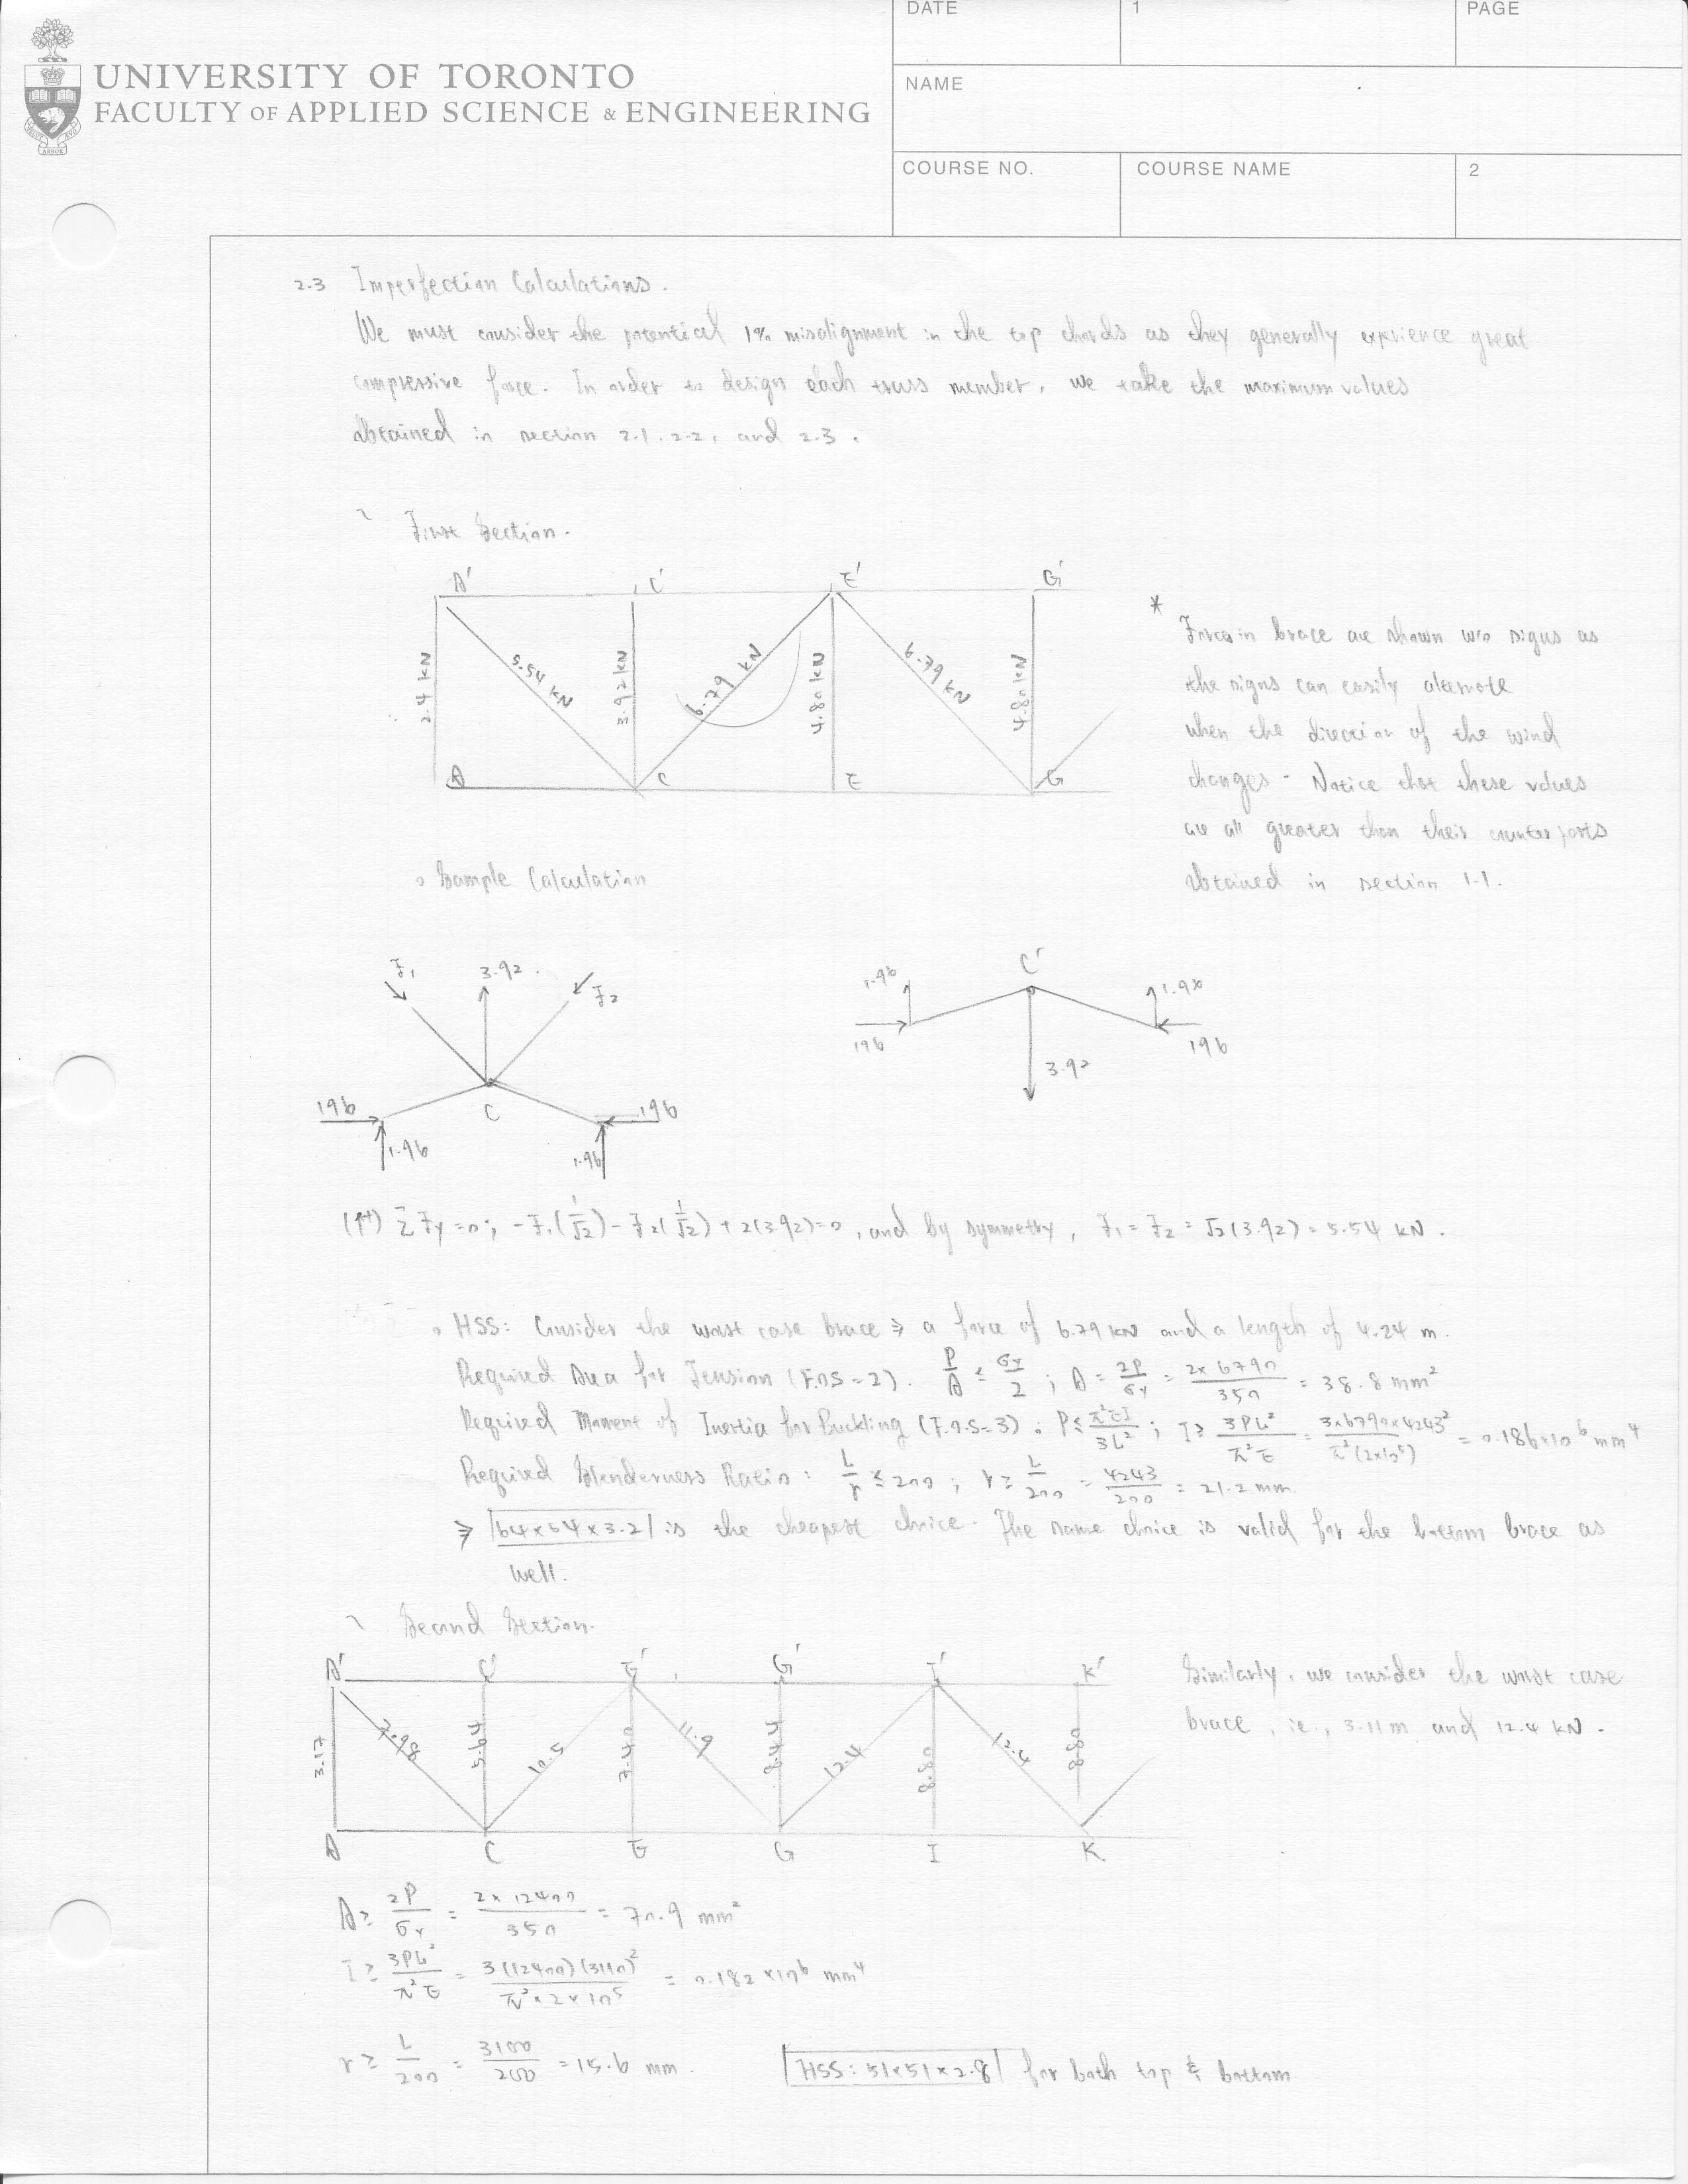 UNIVERSITY OF TORONTO
FACULTY OF APPLIED SCIENCE & ENGINEERING
DATE
1
PAGE
NAME
COURSE NO.
COURSE NAME
2
2.3 Imperfection Calculations.
We must consider the potential 1% misalignment in the top chords as they generally experience great
compressive force. In order to design each truss member, we take the maximum values
obtained in section 2.1, 2.2, and 2.3.
First Section.
A' C' E' G'
2.4 kN 5.54 kN 3.92 kN 6.79 kN 4.80 kN 6.79 kN 4.80 kN
A C E G
* Forces in brace are shown w/o signs as
the signs can easily alternate
when the direction of the wind
changes. Notice that these values
are all greater than their counterparts
obtained in section 1.1.
Sample Calculation
F₁ 3.92 F₂
196 C 196
1.96 1.96
C'
1.96 1.96
196 196
3.92
(↑+) ΣFy = 0; -F₁(1/√2) - F₂(1/√2) + 2(3.92) = 0, and by symmetry, F₁ = F₂ = √2(3.92) = 5.54 kN.
HSS: Consider the worst case brace ⇒ a force of 6.79 kN and a length of 4.24 m.
Required Area for Tension (F.O.S = 2). P/A ≤ σy/2; A = 2P/σy = 2×6790/350 = 38.8 mm²
Required Moment of Inertia for Buckling (F.O.S = 3). P ≤ π²EI/3L²; I ≥ 3PL²/π²E = 3×6790×4243²/π²(2×10⁵) = 0.186×10⁶ mm⁴
Required Slenderness Ratio: L/r ≤ 200; r ≥ L/200 = 4243/200 = 21.2 mm.
⇒ 64×64×3.2 is the cheapest choice. The same choice is valid for the bottom brace as
well.
Second Section.
A' C' E' G' I' K'
3.17 7.98 5.64 10.5 7.40 11.9 8.44 12.4 8.80 12.4 8.80
A C E G I K
Similarly, we consider the worst case
brace, ie., 3.11 m and 12.4 kN.
A ≥ 2P/σy = 2×12400/350 = 70.9 mm²
I ≥ 3PL²/π²E = 3(12400)(3110)²/π²×2×10⁵ = 0.182×10⁶ mm⁴
r ≥ L/200 = 3100/200 = 15.6 mm.
HSS: 51×51×2.8 for both top & bottom